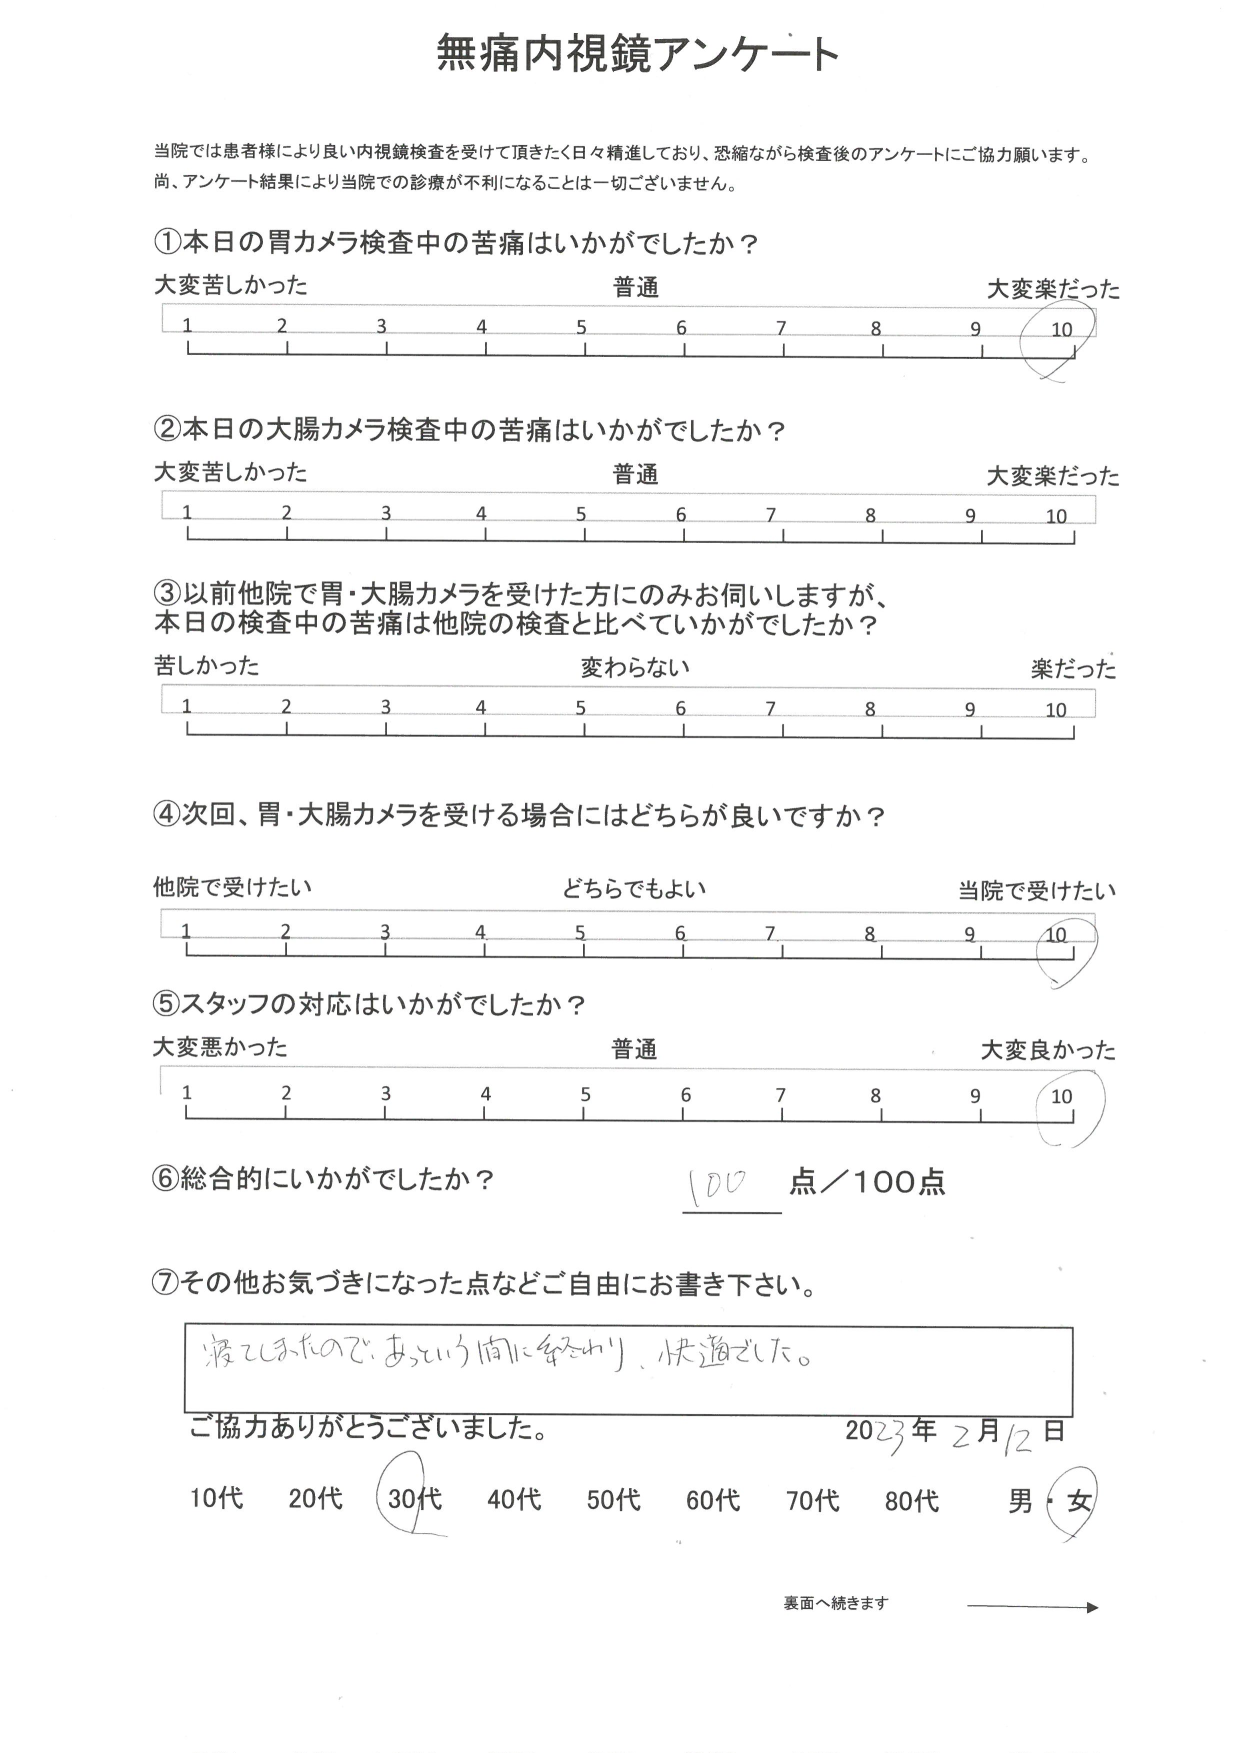 無痛内視鏡アンケート
当院では患者様により良い内視鏡検査を受けて頂きたく日々精進しており、恐縮ながら検査後のアンケートにご協力願います。
尚、アンケート結果により当院での診療が不利になることは一切ございません。
①本日の胃カメラ検査中の苦痛はいかがでしたか？
大変苦しかった 普通 大変楽だった
1 2 3 4 5 6 7 8 9 10
②本日の大腸カメラ検査中の苦痛はいかがでしたか？
大変苦しかった 普通 大変楽だった
1 2 3 4 5 6 7 8 9 10
③以前他院で胃・大腸カメラを受けた方にのみお伺いしますが、
本日の検査中の苦痛は他院の検査と比べていかがでしたか？
苦しかった 変わらない 楽だった
1 2 3 4 5 6 7 8 9 10
④次回、胃・大腸カメラを受ける場合にはどちらが良いですか？
他院で受けたい どちらでもよい 当院で受けたい
1 2 3 4 5 6 7 8 9 10
⑤スタッフの対応はいかがでしたか？
大変悪かった 普通 大変良かった
1 2 3 4 5 6 7 8 9 10
⑥総合的にいかがでしたか？ 100 点／100点
⑦その他お気づきになった点などご自由にお書き下さい。
寝てしまったので、あっという間に終わり、快適でした。
ご協力ありがとうございました。 2023年 2月12日
10代 20代 30代 40代 50代 60代 70代 80代 男・女
裏面へ続きます